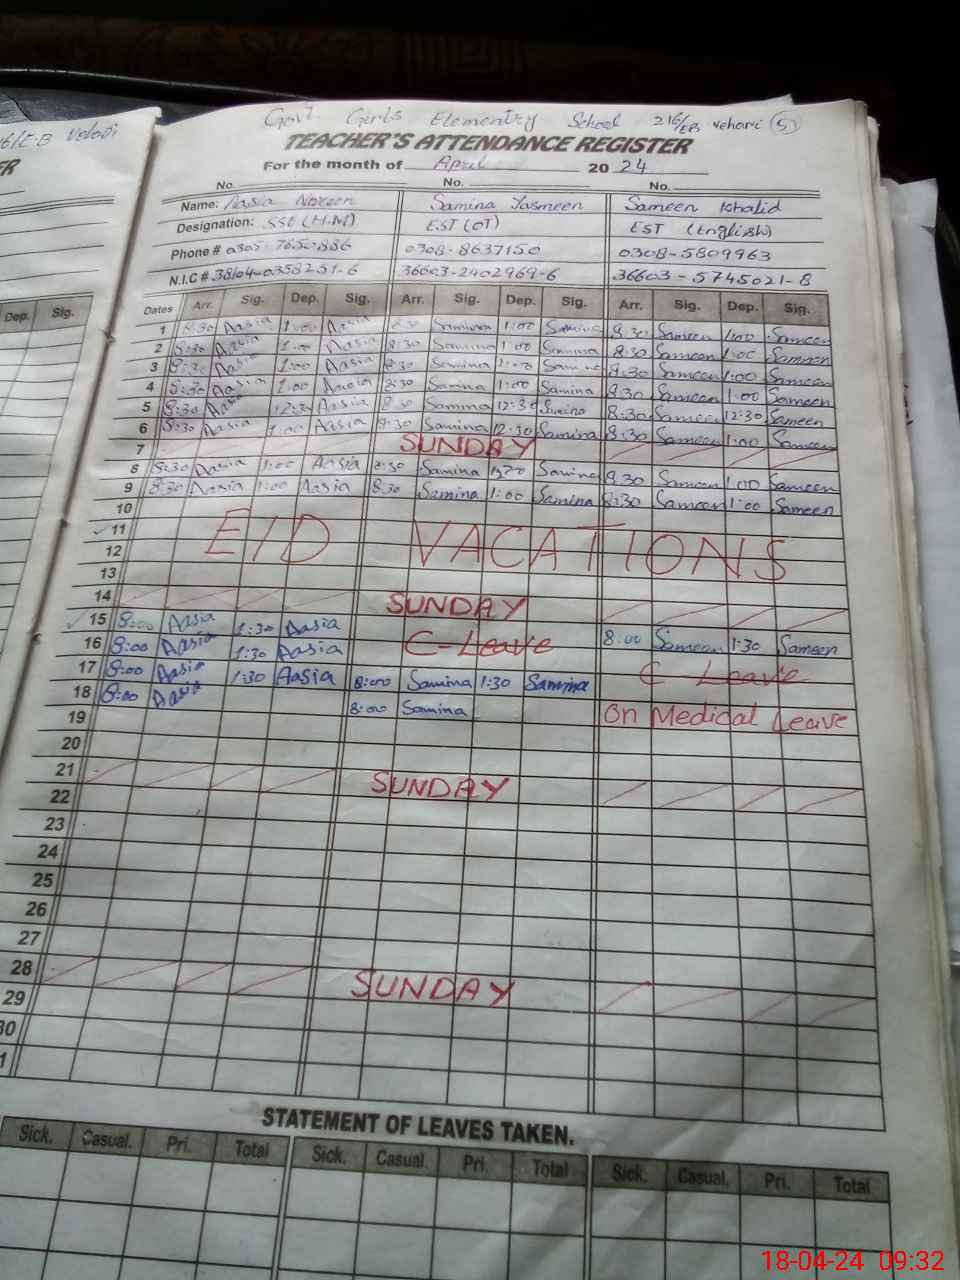 Govt. Girls Elementry School 216/EB Vehari (5)
TEACHER'S ATTENDANCE REGISTER
For the month of April 2024
No. No. No.
Name: Aasia Noreen Samina Yasmeen Sameen Khalid
Designation: SSE (H.M) EST (OT) EST (English)
Phone # 0305-7650886 0308-8637150 0308-5809963
N.I.C # 38104-0358251-6 36603-2402969-6 36603-5745021-8
Dates Arr. Sig. Dep. Sig. Arr. Sig. Dep. Sig. Arr. Sig. Dep. Sig.
1 8:30 Aasia 1:00 Aasia 8:30 Samina 1:00 Samina 8:30 Sameen 1:00 Sameen
2 8:30 Aasia 1:00 Aasia 8:30 Samina 1:00 Samina 8:30 Sameen 1:00 Sameen
3 8:30 Aasia 1:00 Aasia 8:30 Samina 1:00 Samina 8:30 Sameen 1:00 Sameen
4 8:30 Aasia 1:00 Aasia 8:30 Samina 1:00 Samina 8:30 Sameen 1:00 Sameen
5 8:30 Aasia 12:30 Aasia 8:30 Samina 12:30 Samina 8:30 Sameen 12:30 Sameen
6 8:30 Aasia 1:00 Aasia 8:30 Samina 12:30 Samina 8:30 Sameen 1:00 Sameen
7 SUNDAY
8 8:30 Aasia 1:00 Aasia 8:30 Samina Samina 8:30 Sameen 1:00 Sameen
9 8:30 Aasia 1:00 Aasia 8:30 Samina 1:00 Samina 8:30 Sameen 1:00 Sameen
10
11
12 EID VACATIONS
13
14 SUNDAY
15 8:00 Aasia 1:30 Aasia C-Leave 8:00 Sameen 1:30 Sameen
16 8:00 Aasia 1:30 Aasia C-Leave
17 8:00 Aasia 1:30 Aasia 8:00 Samina 1:30 Samina
18 8:00 Aasia 8:00 Samina On Medical Leave
19
20
21 SUNDAY
22
23
24
25
26
27
28 SUNDAY
29
30
1
STATEMENT OF LEAVES TAKEN.
Sick. Casual. Pri. Total Sick. Casual. Pri. Total Sick. Casual. Pri. Total
Dep. Sig.
18-04-24 09:32